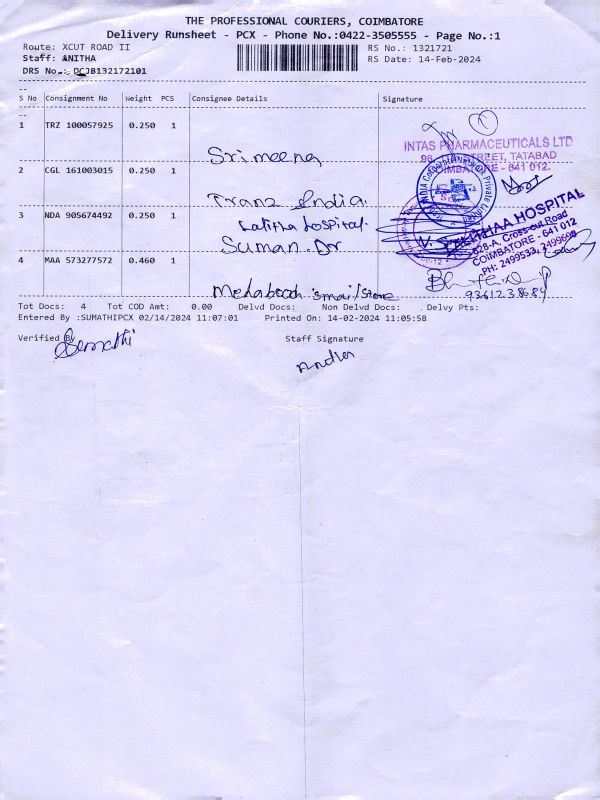 THE PROFESSIONAL COURIERS, COIMBATORE
Delivery Runsheet - PCX - Phone No.:0422-3505555 - Page No.:1
Route: XCUT ROAD II
RS No.: 1321721
Staff: ANITHA
RS Date: 14-Feb-2024
DRS No.: PCJB132172101
S No Consignment No Weight PCS Consignee Details Signature
1 TRZ 100057925 0.250 1
Sri meena
INTAS PHARMACEUTICALS LTD
STREET, TATABAD
COIMBATORE - 641 012.
2 CGL 161003015 0.250 1
Tranz India
3 NDA 905674492 0.250 1
Lalitha hospital
Suman. Dr
HOSPITAL
328-A, Cross-cut Road
COIMBATORE - 641 012
PH: 2499533, 2499698
4 MAA 573277572 0.460 1
9361238684
Tot Docs: 4 Tot COD Amt: 0.00 Delvd Docs: Non Delvd Docs: Delvy Pts:
Entered By :SUMATHIPCX 02/14/2024 11:07:01 Printed On: 14-02-2024 11:05:58
Verified By
Staff Signature
Sumathi